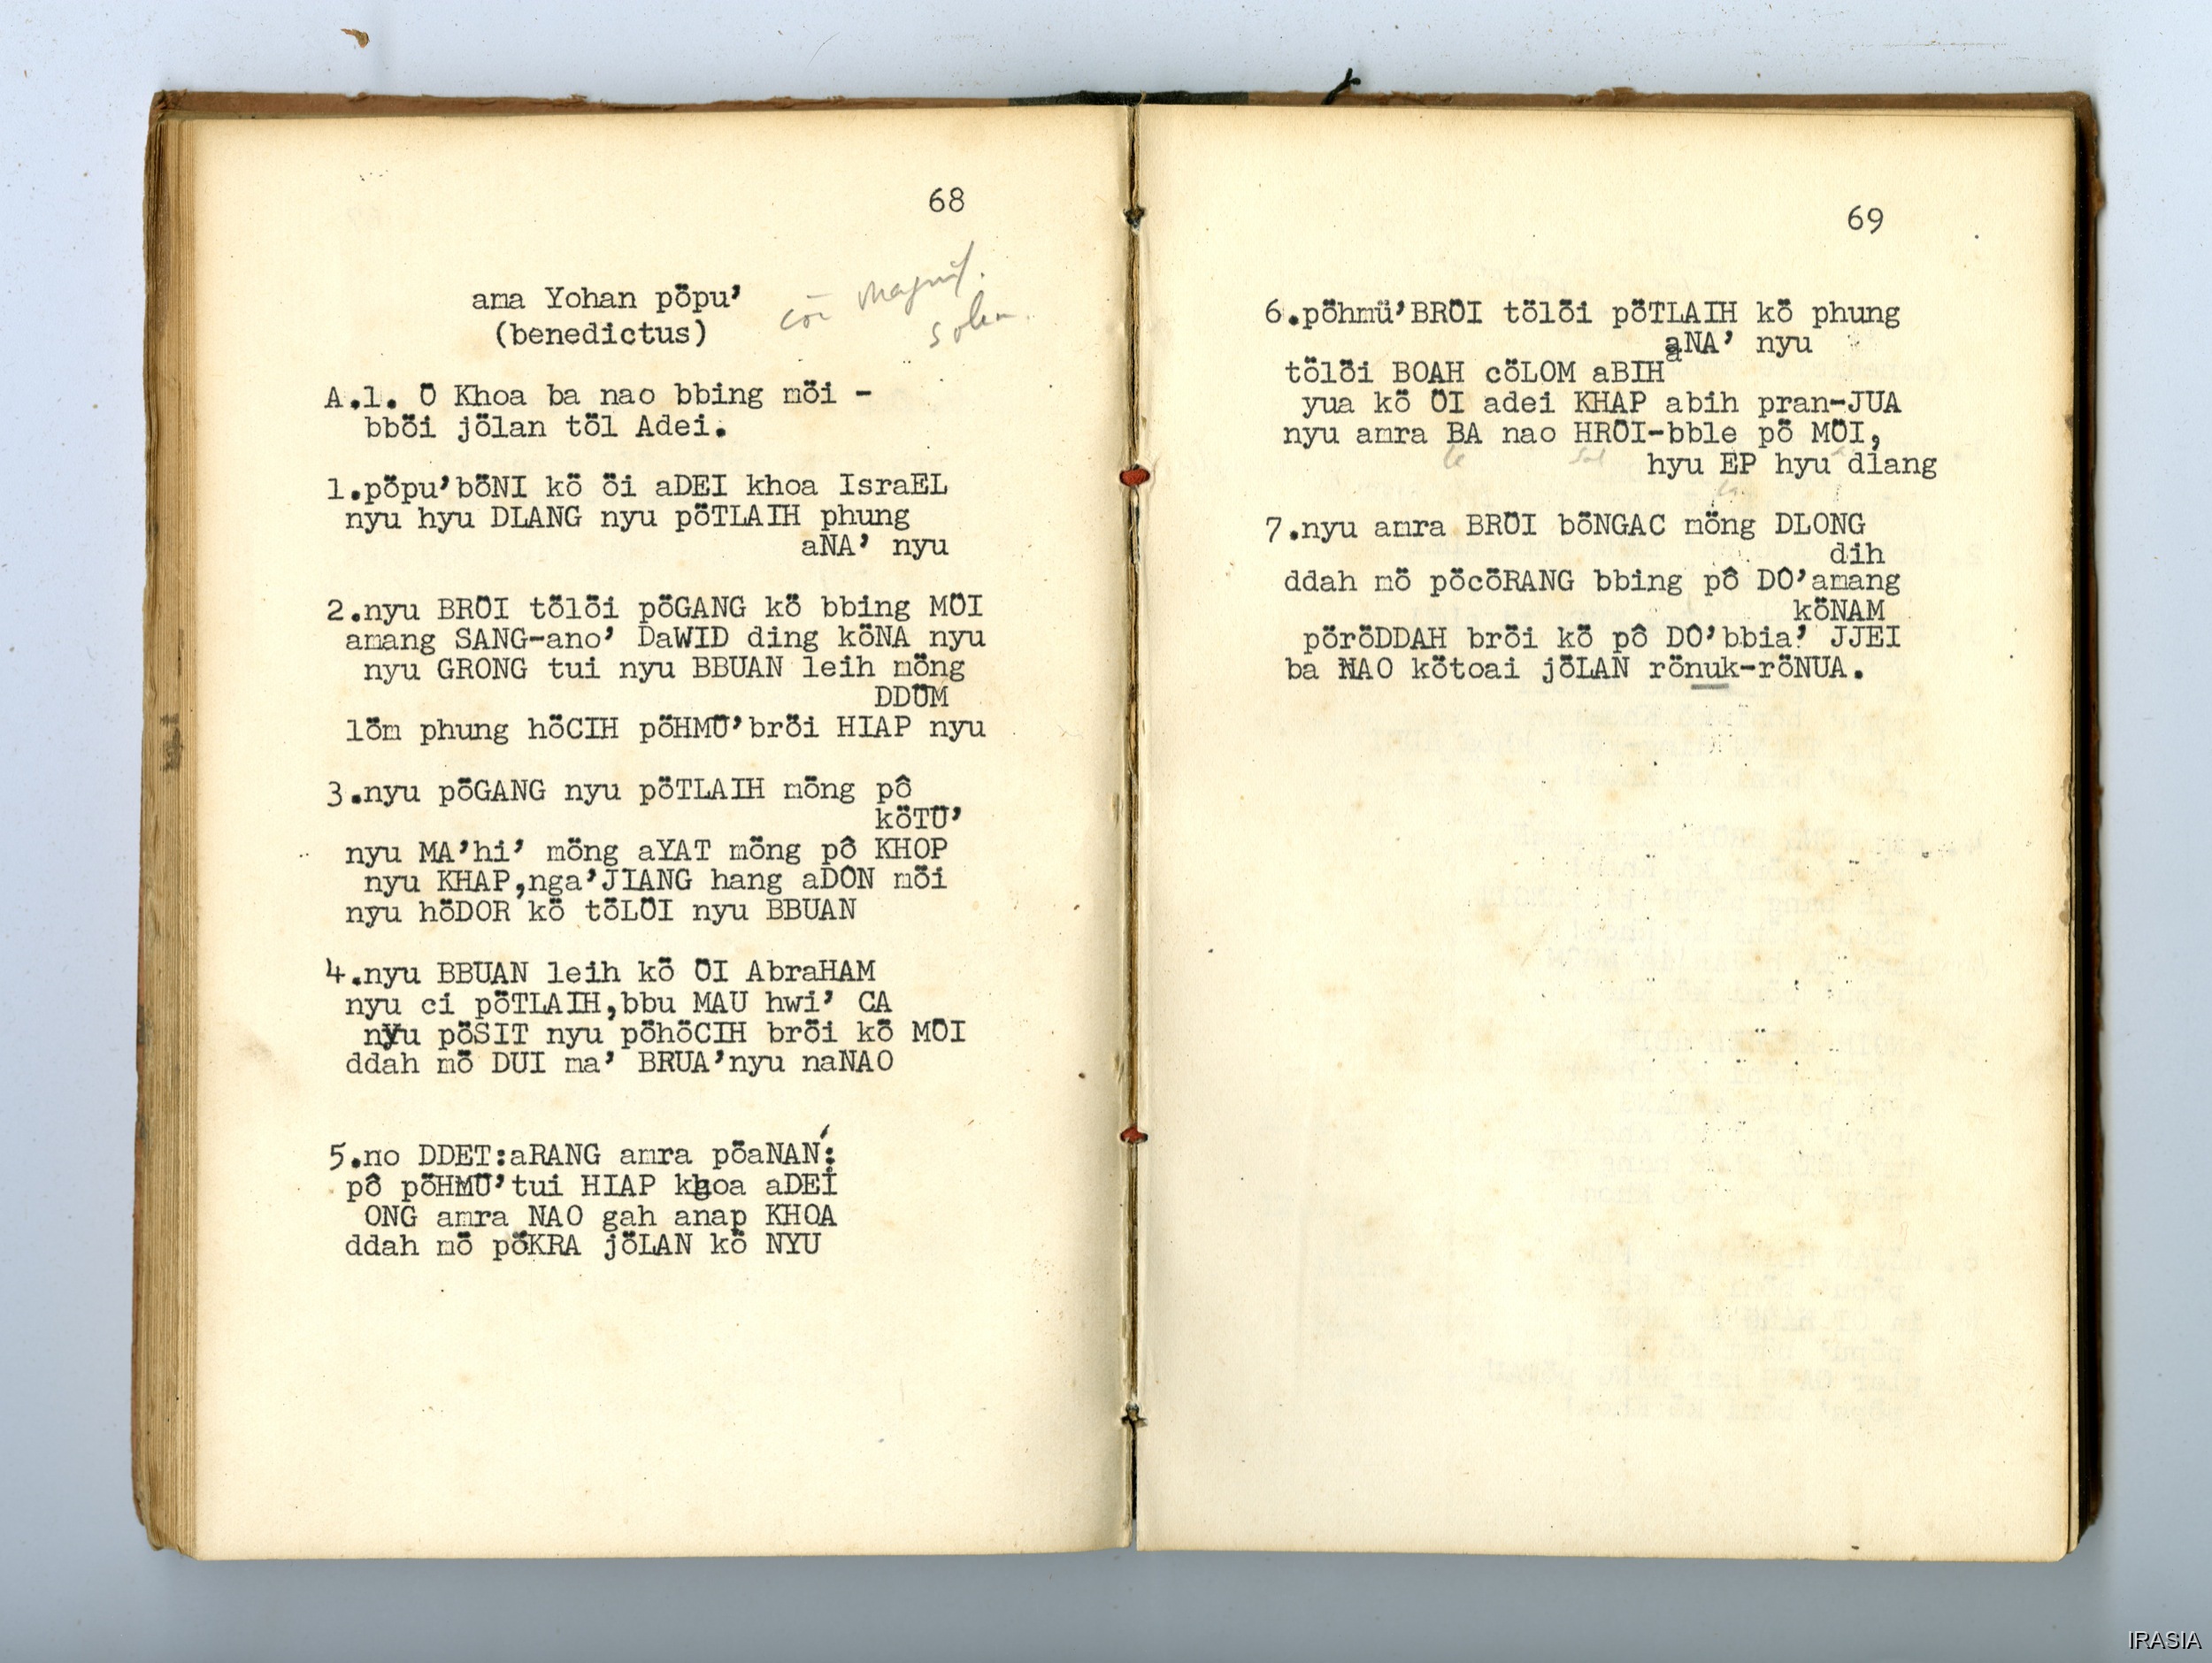 68
ama Yohan pöpu’
(benedictus)
A.l. Ö Khoa ba nao bbing möi -
bböi jölan töl Adei.
1.pöpu’böNI kö öi aDEI khoa IsraEL
nyu hyu DLANG nyu pöTLAIH phung
aNA’ nyu
2.nyu BRÖI tölöi pöGANG kö bbing MÖI
amang SANG-ano’ DaWID ding köNA nyu
nyu GRONG tui nyu BBUAN leih möng
DDÜM
löm phung höCIH pöHMÜ’bröi HIAP nyu
3.nyu pöGANG nyu pöTLAIH möng pô
köTÜ’
nyu MA’hi’ möng aYAT möng pô KHOP
nyu KHAP,nga’JIANG hang aDÔN möi
nyu höDOR kö töLÖI nyu BBUAN
4.nyu BBUAN leih kö ÖI AbraHAM
nyu ci pöTLAIH,bbu MAU hwi’ CA
nyu pöSIT nyu pöhöCIH bröi kö MÖI
ddah mö DUI ma’ BRUA’nyu naNAO
5.no DDET:aRANG amra pöaNAN:
pô pöHMÜ’tui HIAP khoa aDEI
ONG amra NAO gah anap KHOA
ddah mö pöKRA jöLAN kö NYU
69
6.pöhmü’BRÖI tölöi pöTLAIH kö phung
aNA’ nyu
tölöi BOAH cöLOM aBIH
yua kö ÖI adei KHAP abih pran-JUA
nyu amra BA nao HRÖI-bble pö MÖI,
hyu EP hyu dlang
7.nyu amra BRÖI böNGAC möng DLONG
dih
ddah mö pöcöRANG bbing pô DÔ’amang
köNAM
pöröDDAH bröi kö pô DÔ’bbia’ JJEI
ba NAO kötoai jöLAN rönuk-röNUA.
IRASIA